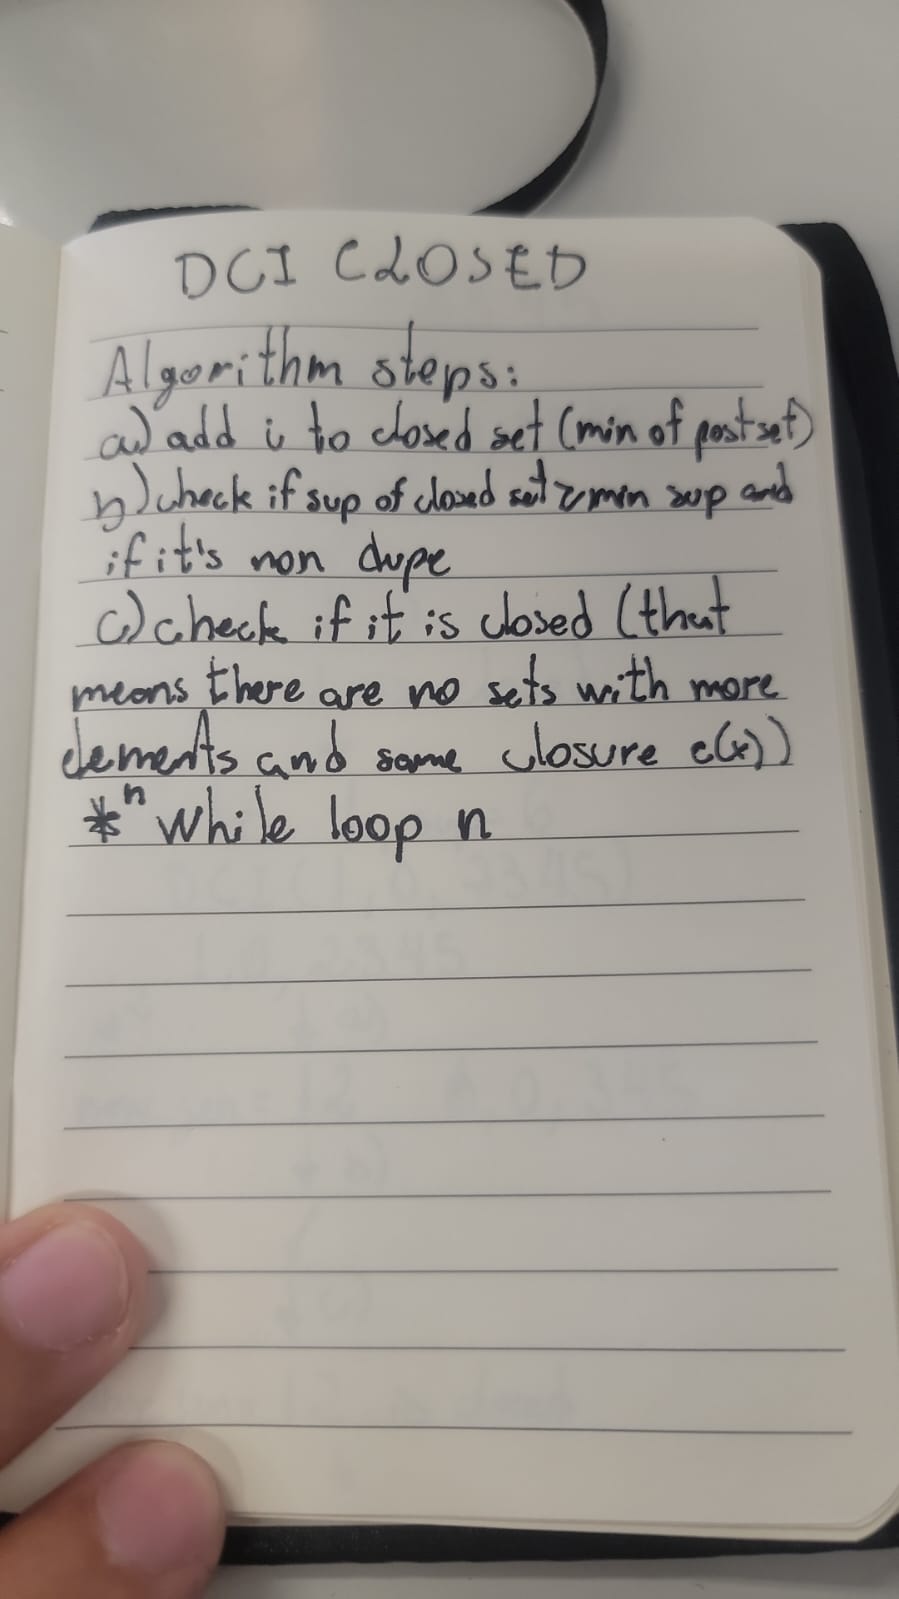 DCI CLOSED
Algorithm steps:
a) add i to closed set (min of postset)
b) check if sup of closed set ≥ min sup and
if it's non dupe
c) check if it is closed (that
means there are no sets with more
elements and same closure c(x))
*ⁿ while loop n